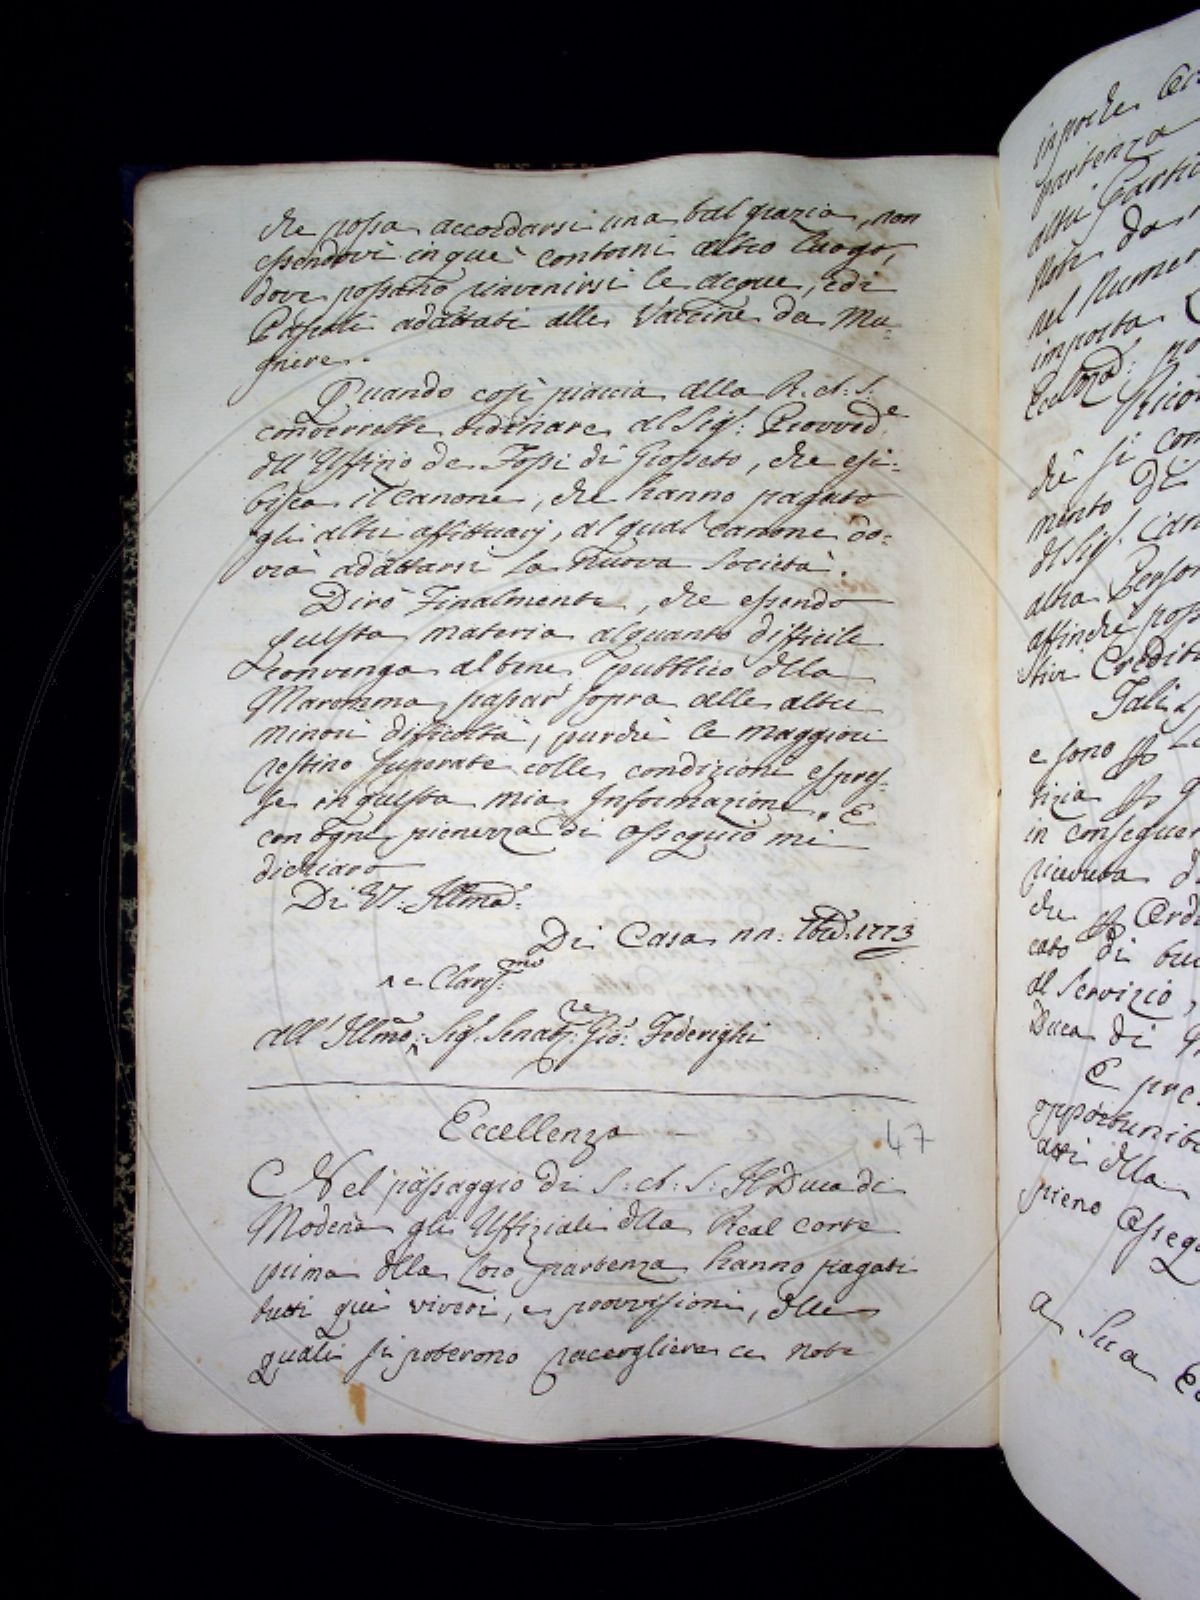 che possa accordarsi una tal grazia, non
essendovi in que' contorni altro luogo,
dove possano rinvenirsi le acque, e di
Pascoli adattati alle Vaccine da Mu-
gnere.
Quando così piaccia alla R. A. S.
converrebbe ordinare al Sig.r Provved.e
dll'Uffizio de Fossi di Grosseto, che esi-
bisca il canone, che hanno pagato
gli altri affittuarj, al qual canone do-
vrà adattarsi la nuova Società.
Dirò Finalmente, che essendo
questa materia alquanto difficile
convenga al bene pubblico dlla
Maremma passar sopra alle altre
minori difficoltà, purchè le maggiori
restino superate colle condizioni espres-
se in questa mia Informazione. E
con ogni pienezza di ossequio mi
dichiaro
Di V.S. Illma:
Di Casa nn: 1773
re Clariss.mo
all' Illmo: Sig.r Senat.re Gio: Federighi
Eccellenza
47
Nel passaggio di S: A: S: Il Duca di
Modena gli Uffiziali dlla Real corte
prima dlla loro partenza hanno pagati
tutti que' viveri, e provvisioni, dlle
quali si poterono raccogliere le note
importa
partenza
altri Partic
Note da
nel Numer
importa
che si con
mento di
dl Sig.r
altra Person
affinchè poss
tivi Credit
Tali
e sono p
tizia p
in consequen
ricevuta
che p
cato di
al servizio
Duca di
E pre
opportunit
atti dlla
pieno ossequ
a Sua E